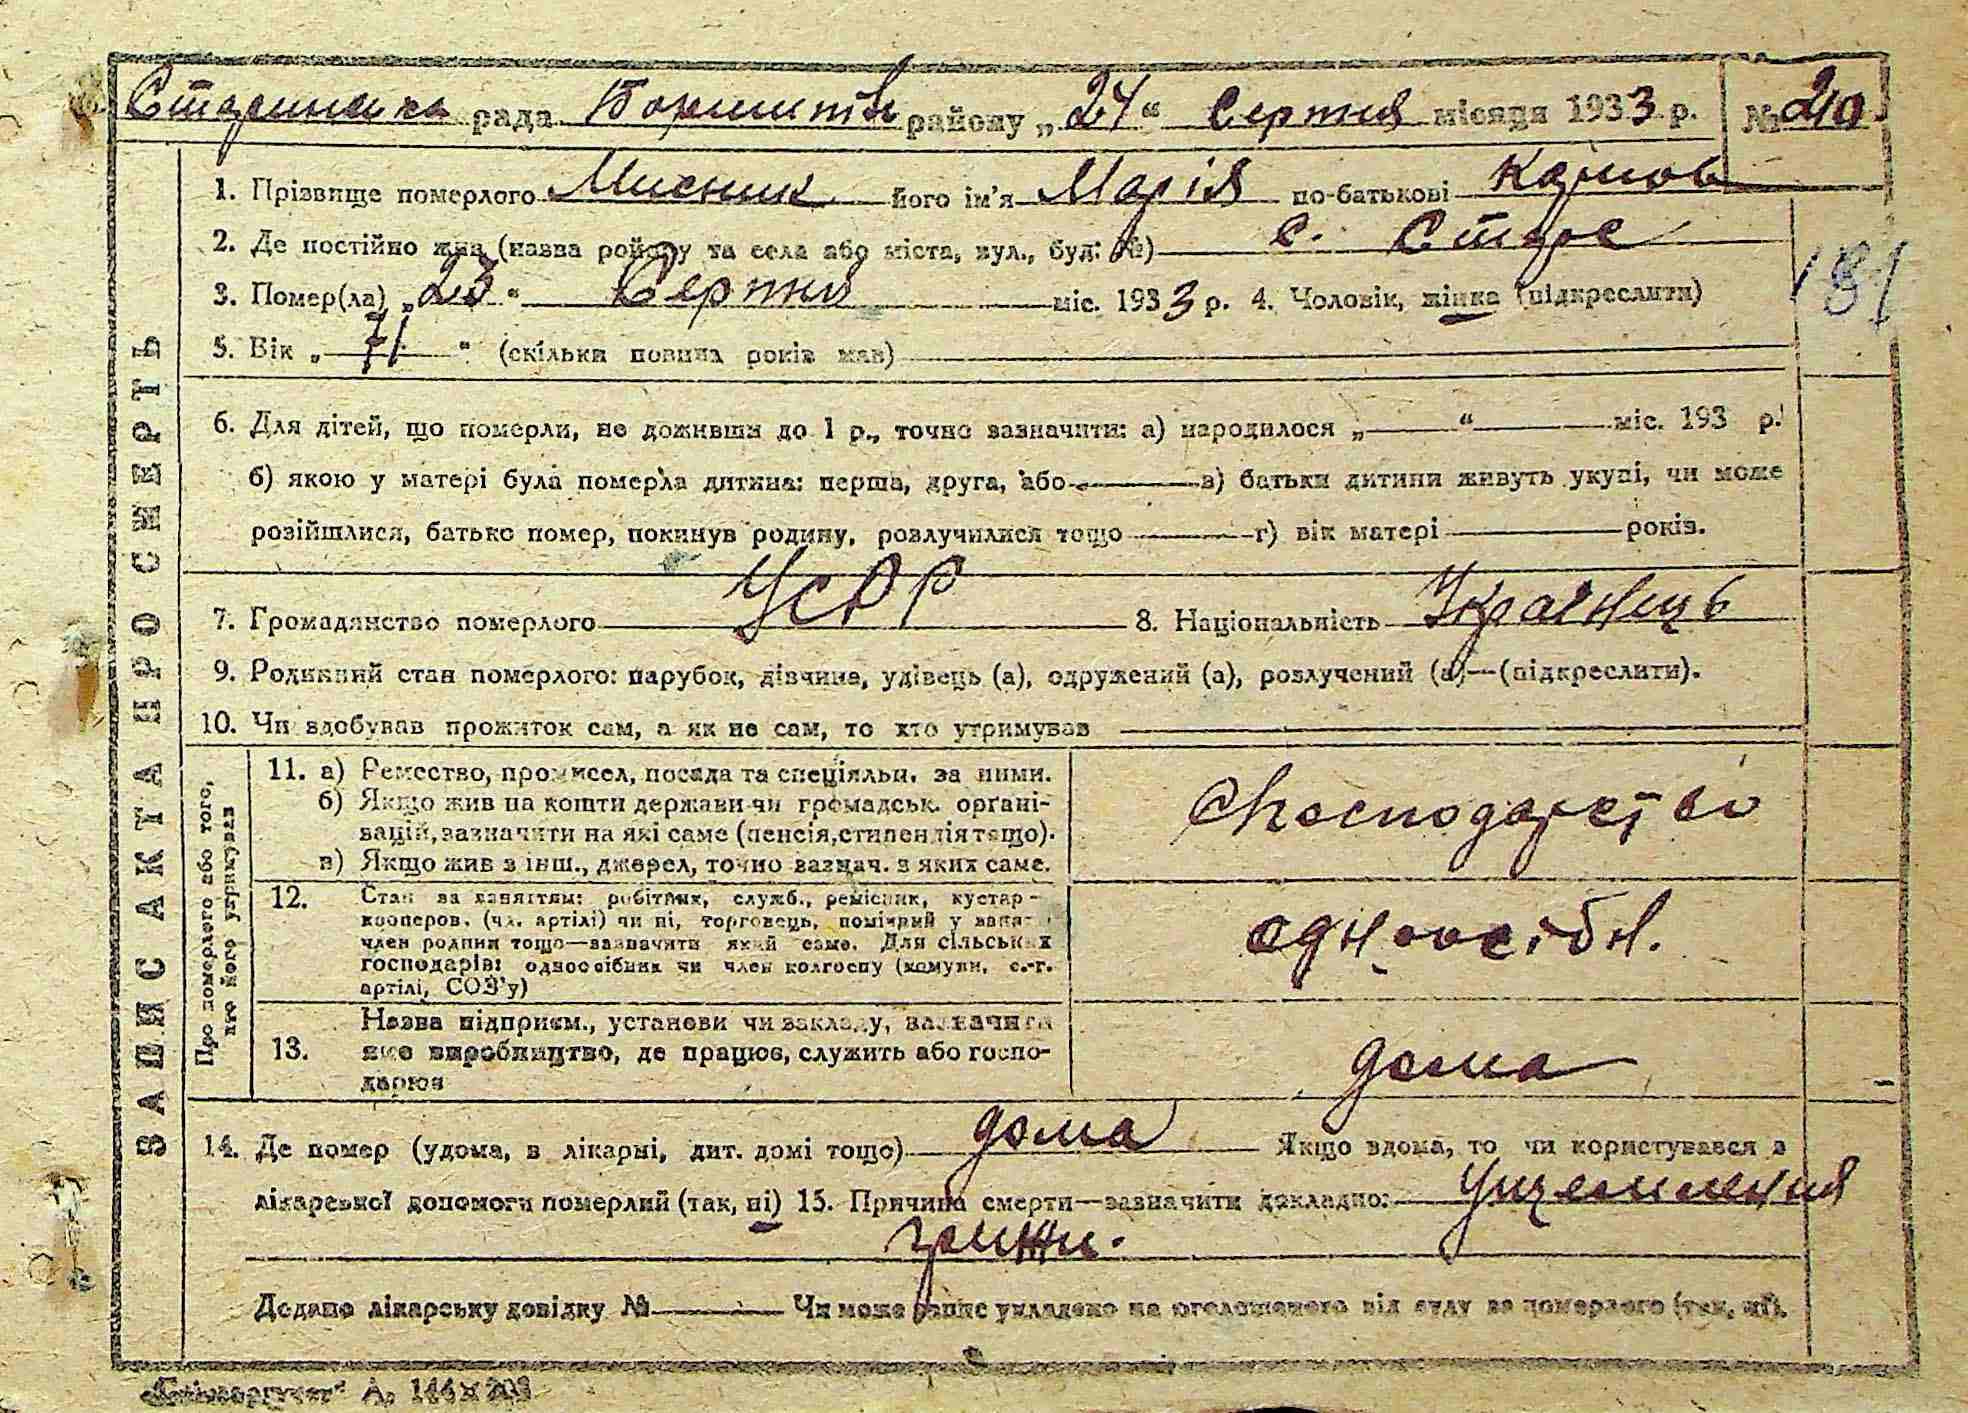 Старинська рада Бориспіль району „24“ Серпня місяця 1933 р. № 210
1. Прізвище померлого Мисник його ім'я Марія по-батькові
2. Де постійно жив (назва району та села або міста, вул., буд. №) с. Старе
3. Помер(ла) „23“ Серпня міс. 1933 р. 4. Чоловік, жінка (підкреслити)
181
5. Вік „71“ (скільки повина років мав)
6. Для дітей, що померли, не доживши до 1 р., точно зазначити: а) народилося „ “ міс. 193 р.
б) якою у матері була померла дитина: перша, друга, або в) батьки дитини живуть укупі, чи може
розійшлися, батько помер, покинув родину, розлучилися тощо г) вік матері років.
7. Громадянство померлого УСРР 8. Національність Українець
9. Родинний стан померлого: парубок, дівчина, удівець (а), одружений (а), розлучений (а)—(підкреслити).
10. Чи здобував прожиток сам, а як не сам, то хто утримував
ЗАПИС АКТА ПРО СМЕРТЬ
Про померлого або того, хто його утримував
11. а) Ремество, промисел, посада та спеціяльн. за ними.
б) Якщо жив на кошти держави чи громадськ. органі-
зацій, зазначити на які саме (пенсія, стипендія тощо).
в) Якщо жив з інш., джерел, точно зазнач. з яких саме.
Господарство
12. Стан за заняттям: робітник, служб., ремісник, кустар-
кооперов. (чл. артілі) чи ні, торговець, помічний у занят
член родини тощо—зазначити який саме. Для сільських
господарів: одноосібник чи член колгоспу (комуни, с.-г.
артілі, СОЗ'у)
одноосібн.
13. Назва підприєм., установи чи закладу, зазначити
яке виробництво, де працює, служить або госпо-
дарює
дома
14. Де помер (удома, в лікарні, дит. домі тощо) дома Якщо вдома, то чи користувався з
лікарської допомоги померлий (так, ні) 15. Причина смерти—зазначити докладно: Ущемлення
грижи.
Додано лікарську довідку № Чи може запис укладено на оголошеного від суду за померлого (так, ні).